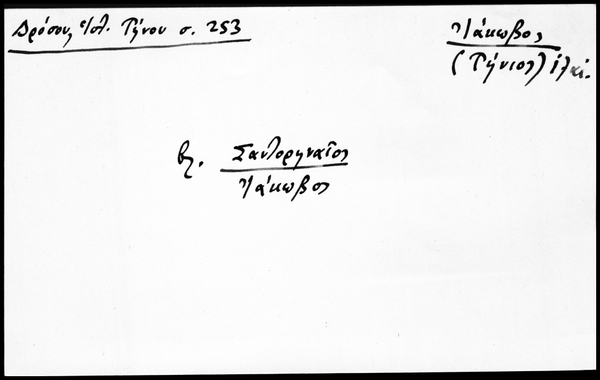 Δρόσου, Ἱστ. Τήνου σ. 253
Ἰάκωβος
(Τήνιος)
βλ. Σαντοριναῖος
Ἰάκωβος